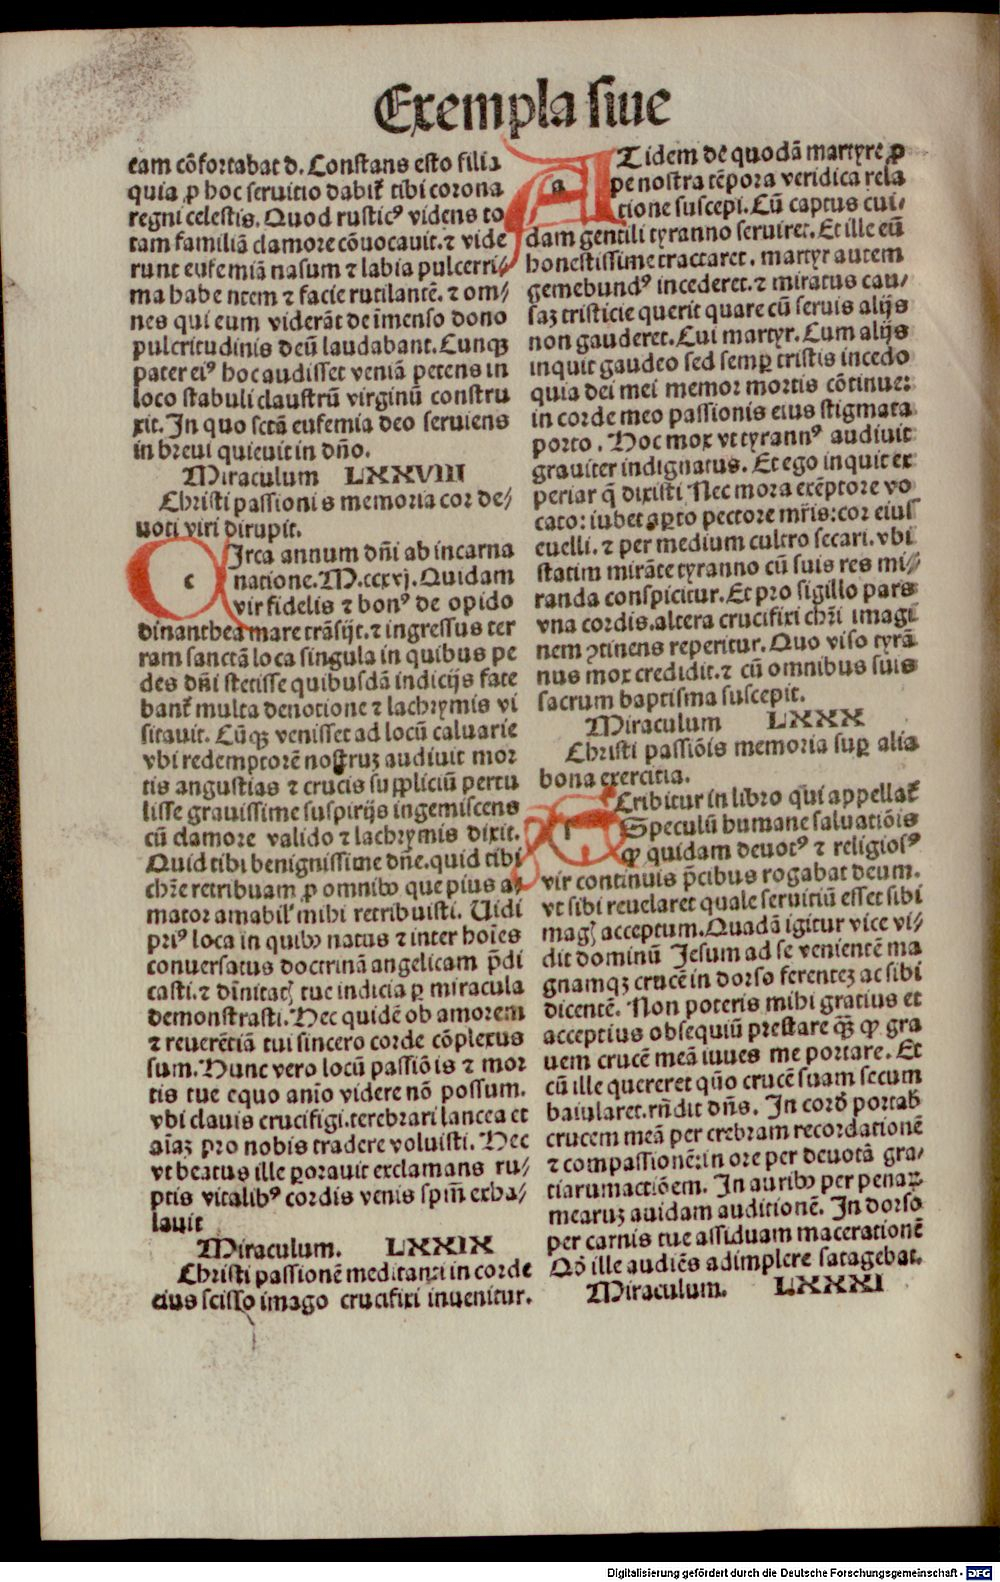 Exempla siue
eam cōfortabat d. Constans esto filia
quia ꝓ hoc seruitio dabit᷑ tibi corona
regni celestis. Quod rusticꝰ videns to
tam familiā clamore cōuocauit. ⁊ vide
runt eufemiā nasum ⁊ labia pulcerri⸗
ma habe ntem ⁊ facie rutilantē. ⁊ om⸗
nes qui eum viderāt de īmenso dono
pulcritudinis deū laudabant. Cunqꝫ
pater eiꝰ hoc audisset veniā petens in
loco stabuli claustrū virginū constru
xit. In quo sctā eufemia deo seruiens
in breui quieuit in dño.
Miraculum LXXVIII
Christi passioni s memoria cor de⸗
uoti viri dirupit.
c Irca annum dñi ab incarna
natione. M.ccxvj. Quidam
vir fidelis ⁊ bonꝰ de opido
dinanthea mare trāsijt. ⁊ ingressus ter
ram sanctā loca singula in quibus pe
des dñi stetisse quibusdā indicijs fate
bant᷑ multa deuotione ⁊ lachrymis vi
sitauit. Cūqꝫ venisset ad locū caluarie
vbi redemptorē nostruꝫ audiuit mor
tis angustias ⁊ crucis suppliciū pertu
lisse grauissime suspirijs ingemiscens
cū clamore valido ⁊ lachrymis dixit.
Quid tibi benignissime dñe. quid tibi
chr̄e retribuam ꝓ omnibꝰ que pius a⸗
mator amabil' mihi retribuisti. Uidi
priꝰ loca in quibꝰ natus ⁊ inter hoīes
conuersatus doctrinā angelicam p̄di
casti. ⁊ dīnitatꝭ tue indicia ꝑ miracula
demonstrasti. Hec quidē ob amorem
⁊ reuerētiā tui sincero corde cōplexus
sum. Hunc vero locū passiōis ⁊ mor
tis tue equo anīo videre nō possum.
vbi clauis crucifigi. terebrari lancea et
aīaꝫ pro nobis tradere voluisti. Hec
vt beatus ille ꝑorauit exclamans ru⸗
ptis vitalibꝰ cordis venis spm̄ exha⸗
lauit
Miraculum. LXXIX
Christi passionē meditanti in corde
eius scisso imago crucifixi inuenitur.
a Tidem de quodā martyre ꝓ
pe nostra tēpora veridica rela
tione suscepi. Cū captus cui⸗
dam gentili tyranno seruiret. Et ille eū
honestissime tractaret. martyr autem
gemebundꝰ incederet. ⁊ miratus cau⸗
saꝫ tristicie querit quare cū seruis alijs
non gauderet. Cui martyr. Cum alijs
inquit gaudeo sed semꝑ tristis incedo
quia dei mei memor mortis cōtinue:
in corde meo passionis eius stigmata
porto. Hoc mox vt tyrannꝰ audiuit
grauiter indignatus. Et ego inquit ex
periar q̄ dixisti Nec mora exēptore vo
cato: iubet aꝑto pectore mr̄is: cor eius
euelli. ⁊ per medium cultro secari. vbi
statim mirāte tyranno cū suis res mi⸗
randa conspicitur. Et pro sigillo pars
vna cordis. altera crucifixi chr̄i imagi
nem ꝯtinens reperitur. Quo viso tyrā
nus mox credidit. ⁊ cū omnibus suis
sacrum baptisma suscepit.
Miraculum LXXX
Christi passiōis memoria suꝑ alia
bona exercitia.
Cribitur in libro qui appellat᷑
Speculū humane saluatiōis
ꝙ quidam deuotꝰ ⁊ religiosꝰ
vir continuis p̄cibus rogabat deum.
vt sibi reuelaret quale seruitiū esset sibi
magꝭ acceptum. Quadā igitur vice vi⸗
dit dominū Jesum ad se venientē ma
gnamqꝫ crucē in dorso ferenteꝫ ac sibi
dicentē. Non poteris mihi gratius et
acceptius obsequiū prestare q̄ꝫ ꝙ gra
uem crucē meā iuues me portare. Et
cū ille quereret quō crucē suam secum
baiularet. rn̄dit dñs. In corde portab
crucem meā per crebram recordationē
⁊ compassionē: in ore per deuotā gra⸗
tiarumactiōem. In auribꝰ per penaꝝ
mearuꝫ auidam auditionē. In dorso
per carnis tue assiduam macerationē
Qō ille audiēs adimplere satagebat.
Miraculum. LXXXI
Digitalisierung gefördert durch die Deutsche Forschungsgemeinschaft - DFG